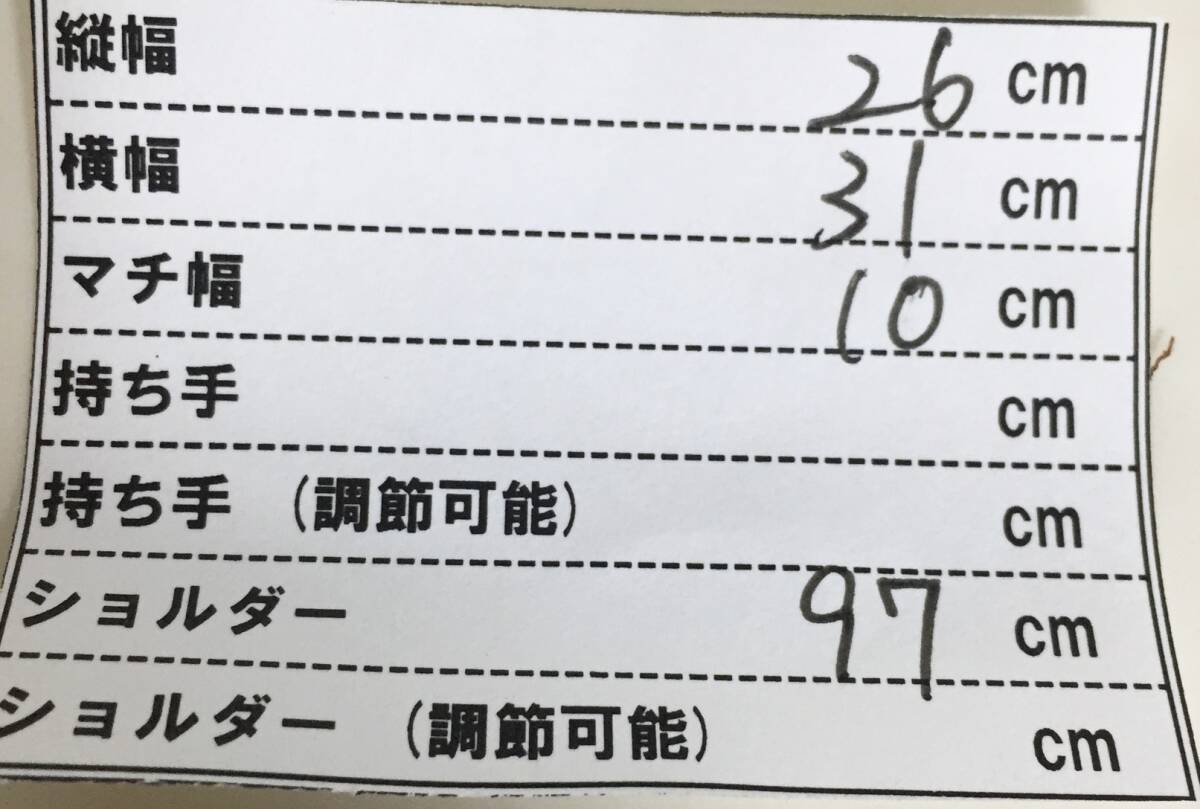 縦幅 26 cm
横幅 31 cm
マチ幅 10 cm
持ち手 cm
持ち手 (調節可能) cm
ショルダー 97 cm
ショルダー (調節可能) cm